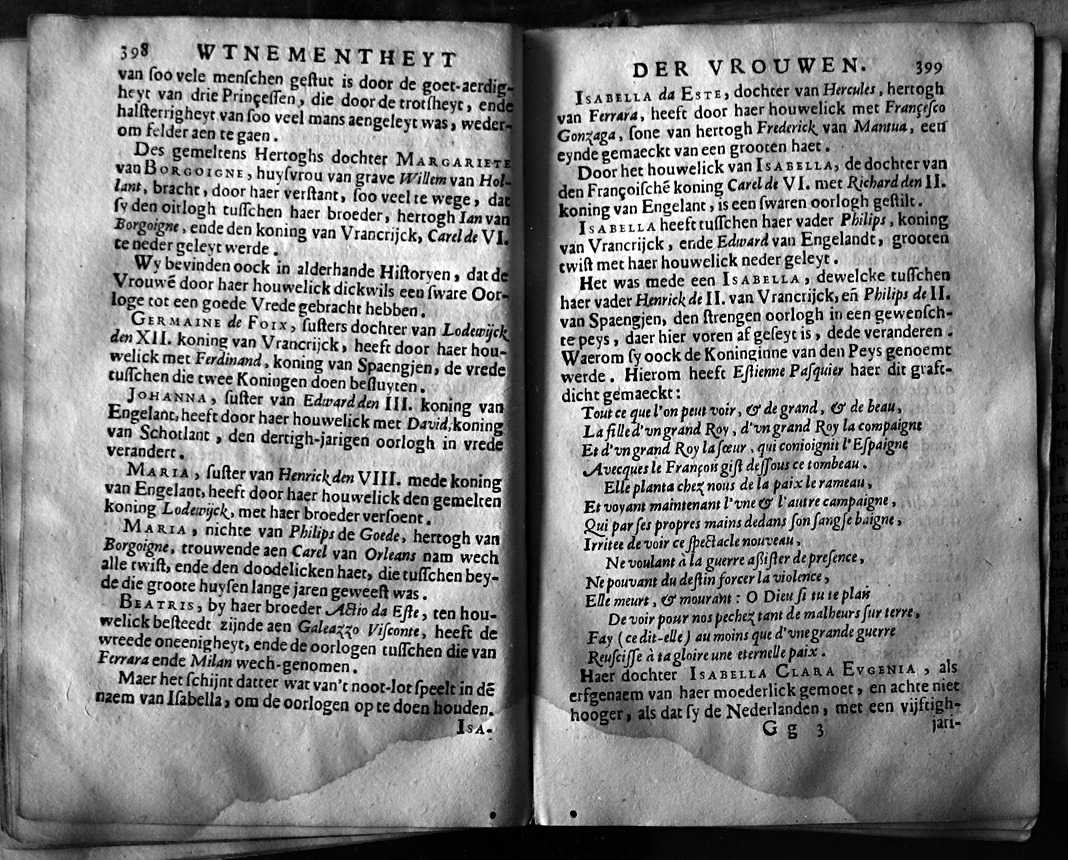 398 WTNEMENTHEYT
van ſoo vele menſchen geſtut is door de goet-aerdig-
heyt van drie Prinçeſſen, die door de trotſheyt, ende
halſterrigheyt van ſoo veel mans aengeleyt was, weder-
om ſelder aen te gaen.
Des gemeltens Hertoghs dochter MARGARIETE
van BORGOIGNE, huyſvrou van grave Willem van Hol-
lant, bracht, door haer verſtant, ſoo veel te wege, dat
ſy den oirlogh tuſſchen haer broeder, hertogh Ian van
Borgoigne, ende den koning van Vrancrijck, Carel de VI.
te neder geleyt werde.
Wy bevinden oock in alderhande Hiſtoryen, dat de
Vrouwē door haer houwelick dickwils een ſware Oor-
loge tot een goede Vrede gebracht hebben.
GERMAINE de FOIX, ſuſters dochter van Lodewijck
den XII. koning van Vrancrijck, heeft door haer hou-
welick met Ferdinand, koning van Spaengjen, de vrede
tuſſchen die twee Koningen doen beſluyten.
JOHANNA, ſuſter van Edward den III. koning van
Engelant, heeft door haer houwelick met David, koning
van Schotlant, den dertigh-jarigen oorlogh in vrede
verandert.
MARIA, ſuſter van Henrick den VIII. mede koning
van Engelant, heeft door haer houwelick den gemelten
koning Lodewijck, met haer broeder verſoent.
MARIA, nichte van Philips de Goede, hertogh van
Borgoigne, trouwende aen Carel van Orleans nam wech
alle twiſt, ende den doodelicken haet, die tuſſchen bey-
de die groote huyſen lange jaren geweeſt was.
BEATRIS, by haer broeder Actio da Eſte, ten hou-
welick beſteedt zijnde aen Galeazzo Viſconte, heeft de
wreede oneenigheyt, ende de oorlogen tuſſchen die van
Ferrara ende Milan wech-genomen.
Maer het ſchijnt datter wat van't noot-lot ſpeelt in dē
naem van Iſabella, om de oorlogen op te doen houden.
ISA-
DER VROUWEN. 399
ISABELLA da ESTE, dochter van Hercules, hertogh
van Ferrara, heeft door haer houwelick met Françeſco
Gonzaga, ſone van hertogh Frederick van Mantua, een
eynde gemaeckt van een grooten haet.
Door het houwelick van ISABELLA, de dochter van
den Françoiſchē koning Carel de VI. met Richard den II.
koning van Engelant, is een ſwaren oorlogh geſtilt.
ISABELLA heeft tuſſchen haer vader Philips, koning
van Vrancrijck, ende Edward van Engelandt, grooten
twiſt met haer houwelick neder geleyt.
Het was mede een ISABELLA, dewelcke tuſſchen
haer vader Henrick de II. van Vrancrijck, eñ Philips de II.
van Spaengjen, den ſtrengen oorlogh in een gewenſch-
te peys, daer hier voren af geſeyt is, dede veranderen.
Waerom ſy oock de Koninginne van den Peys genoemt
werde. Hierom heeft Eſtienne Paſquier haer dit graft-
dicht gemaeckt:
Tout ce que l'on peut voir, & de grand, & de beau,
La fille d'vn grand Roy, d'vn grand Roy la compaigne
Et d'vn grand Roy la ſœur, qui conioignit l'Eſpaigne
Avecques le François giſt deſſous ce tombeau.
Elle planta chez nous de la paix le rameau,
Et voyant maintenant l'vne & l'autre campaigne,
Qui par ſes propres mains dedans ſon ſang ſe baigne,
Irritee de voir ce ſpectacle nouveau,
Ne voulant à la guerre aßiſter de preſence,
Ne pouvant du deſtin forcer la violence,
Elle meurt, & mourant: O Dieu ſi tu te plais
De voir pour nos pechez tant de malheurs ſur terre,
Fay (ce dit-elle) au moins que d'vne grande guerre
Reuſciſſe à ta gloire une eternelle paix.
Haer dochter ISABELLA CLARA EVGENIA, als
erfgenaem van haer moederlick gemoet, en achte niet
hooger, als dat ſy de Nederlanden, met een vijftigh-
Gg 3 jari-